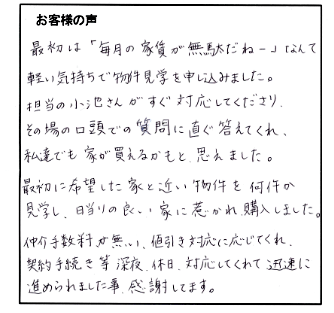 お客様の声
最初は「毎月の家賃が無駄だねー」なんて
軽い気持ちで物件見学を申し込みました。
担当の小池さんがすぐ対応してくださり、
その場の口頭での質問に直ぐ答えてくれ、
私達でも家が買えるかもと思えました。
最初に希望した家と近い物件を何件か
見学し、日当りの良い家に惹かれ購入しました。
仲介手数料が無い、値引き対応に応じてくれ、
契約手続き等深夜、休日、対応してくれて迅速に
進められました事、感謝してます。